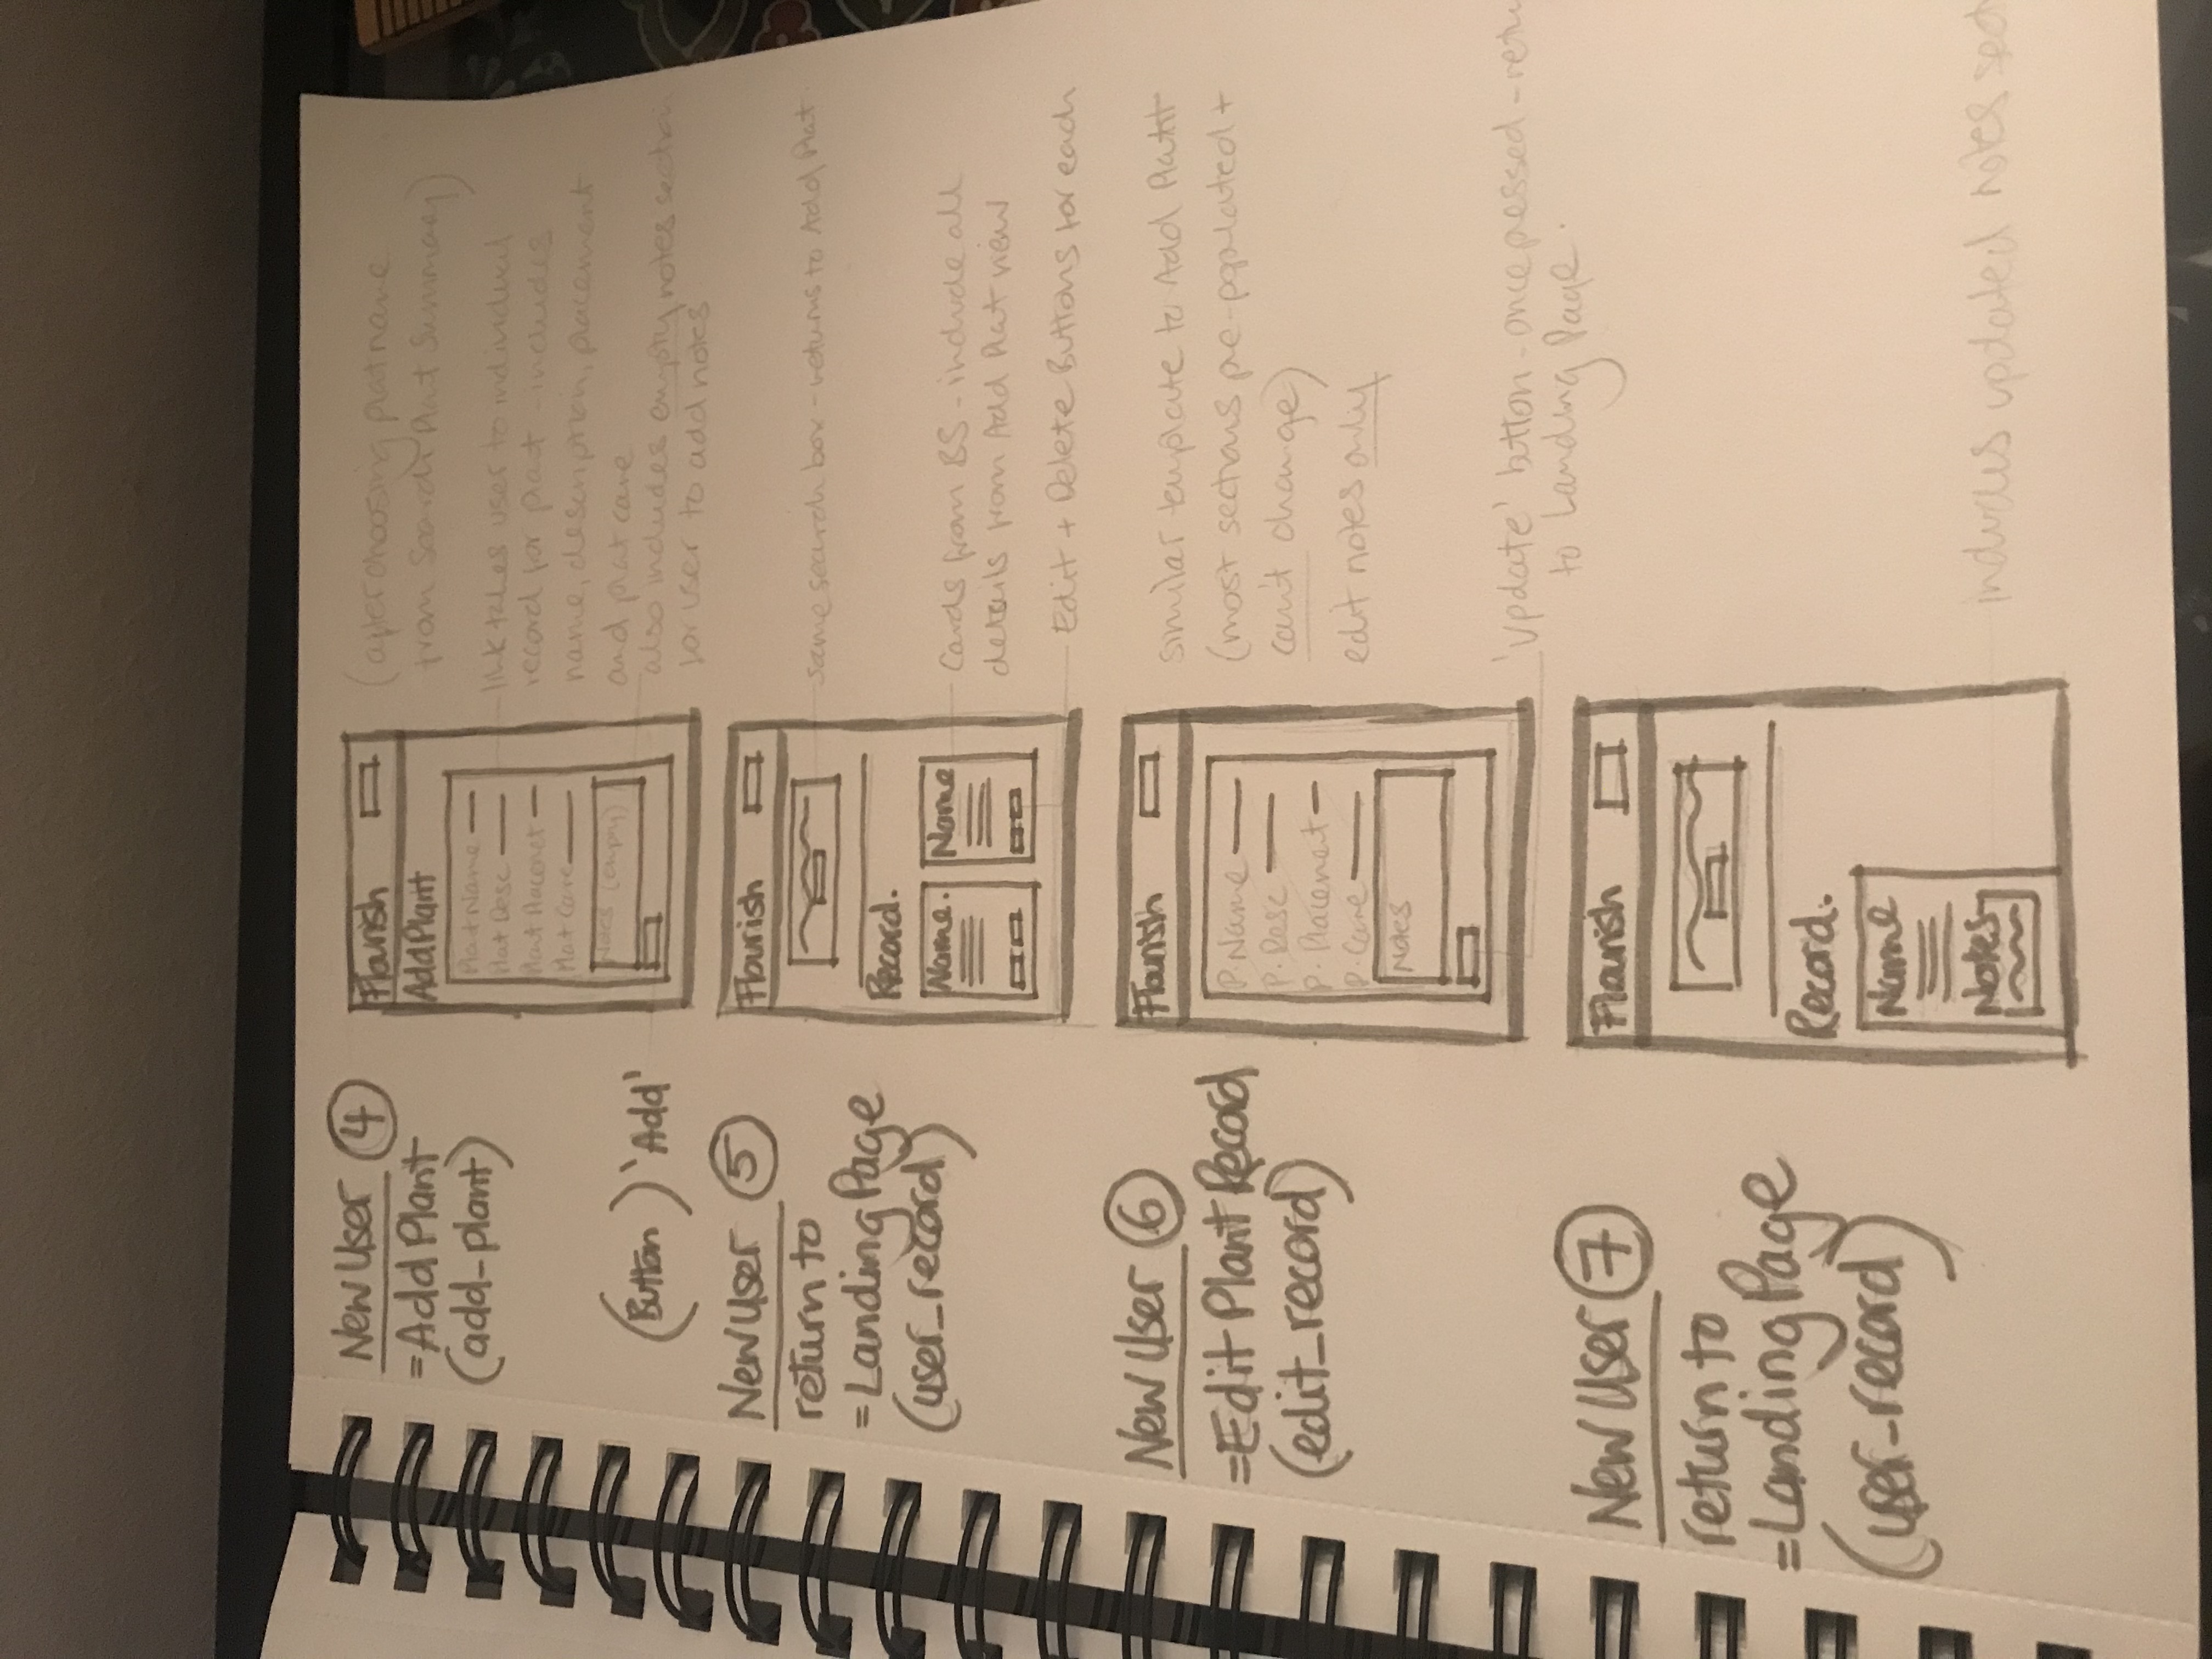 New User 4
= Add Plant
(add-plant)
(Button) 'Add'
Flourish
Add Plant
Plant Name
Plant Desc
Plant Placemet
Plant Care
Notes (empty)
(after choosing plant name
from Search Plant Summary)
link takes user to individual
record for plant - includes
name, description, placement
and plant care
also includes empty notes section
for user to add notes
New User 5
return to
= Landing Page
(user_record)
Flourish
Record.
Name.
Name
same search box - returns to Add Plant
Cards from BS - include all
details from Add Plant view
Edit + Delete Buttons for each
New User 6
= Edit Plant Record
(edit_record)
Flourish
P. Name
P. Desc
P. Placement
P. Care
Notes
similar template to Add Plant
(most sections pre-populated +
can't change)
edit notes only
'update' button - once pressed - retu
to Landing Page.
New User 7
return to
= Landing Page
(user-record)
Flourish
Record.
Name
Notes
includes updated notes sect